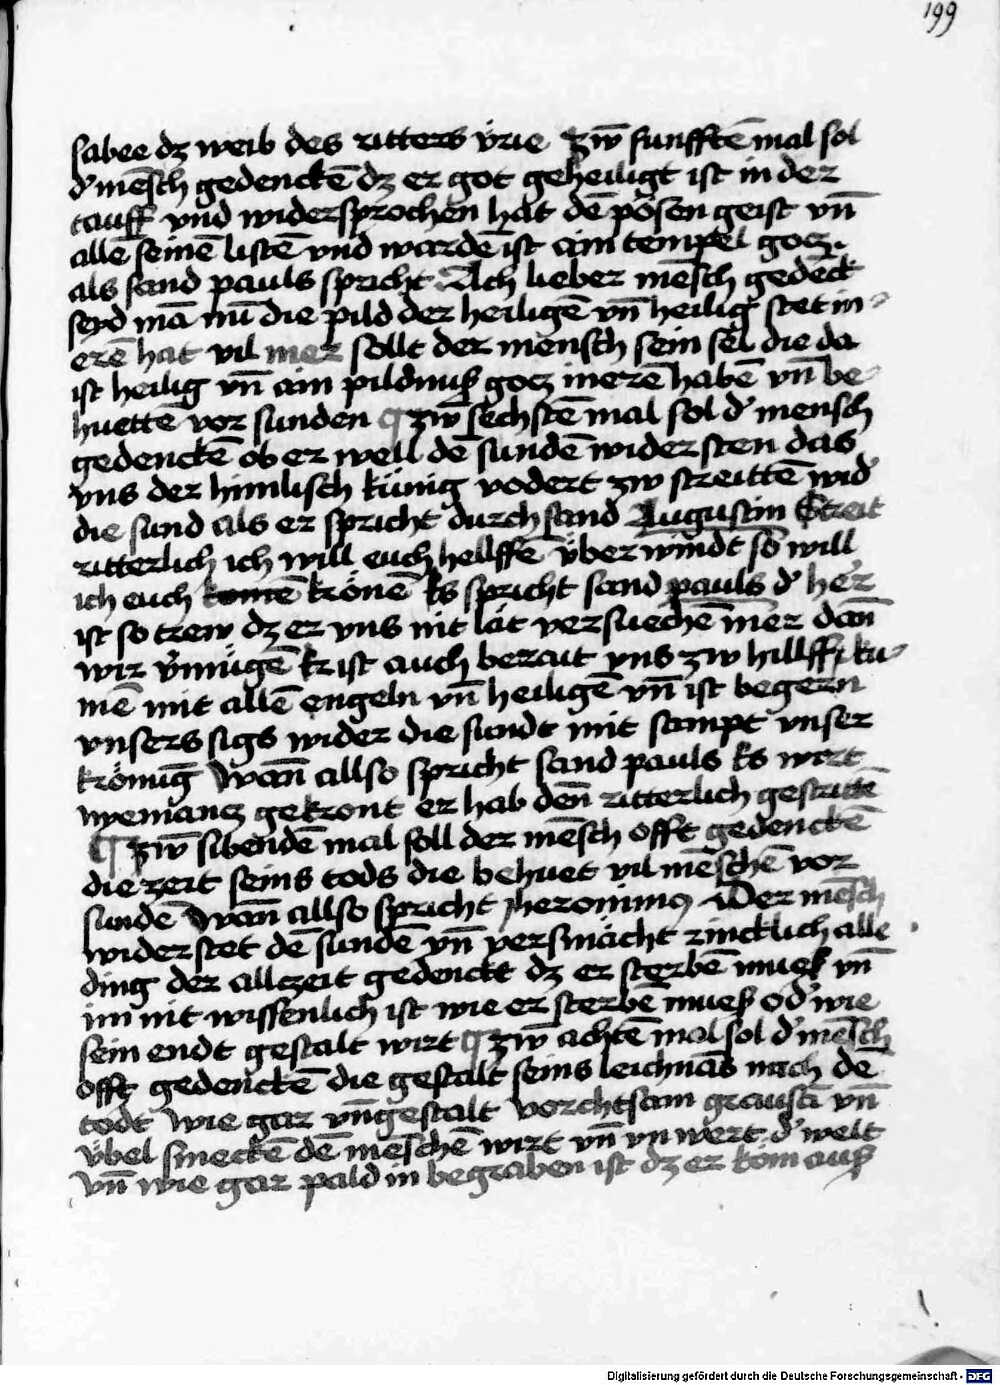 199
sabee dz weib des ritters vrie Zw̄ funfftē mal sol
d' mēsch gedenckē dz er got geheiligt ist in der
tauff vnd widersprochen hat dē pösen geist vn̄
allē seinē listē vnd wardē ist ain tempel gocz.
als sand pauls spricht Ach lieber mēsch gedēck
seyd mā nū die pild der heiligē vn̄ heilig stet in
erē hat vil mer sollt der mensch sein sel die da
ist heilig vn̄ ain pildnuß gocz in erē habē vn̄ be
huettē vor sunden ¶ Zw̄ sechstē mal sol d' mensch
gedenckē ob er well dē sundē widersten das
vns der himlisch künig vodert zw streittē wid'
die sund als er spricht durch sand Augustin Streit
ritterlich ich will euch hellffē über windt so will
ich euch krönē Es spricht sand pauls d' her
ist so trew dz er vns nit lät versuechē mer dan̄
wir v'mügē Er ist auch berait vns zw hillff ku
mē mit allē engeln vn̄ heiligē vn̄ ist begern
vnsers sigs wider die sundt mit sampt vnser
krönuḡ Wan̄ allso spricht sand pauls Es wirt
nyemancz gekront er hab den̄ ritterlich gestrittē
¶ Zw̄ sibendē mal soll der mēsch offt gedenckē
die zeit seins tods die behuet vil mēschē vor
sundē Wan̄ allso spricht Jheronimus Der mēsch
widerstet dē sundē vn̄ versmächt rincklich alle
ding der allczeit gedenckt dz er sterbē mueß vn̄
im nit wissenlich ist wie er sterbē mueß od' wie
sein endt gestalt wirt ¶ Zw̄ achtē mal sol d' mēsch
offt gedenckē die gestalt seins leichnās nach dē
todt wie gar vn̄gestalt vorchtsam grausā vn̄
übel smeckē dē mēschē wirt vn̄ vnwert d' welt
vn̄ wie gar pald in begraben ist dz er kom auß
Digitalisierung gefördert durch die Deutsche Forschungsgemeinschaft - DFG